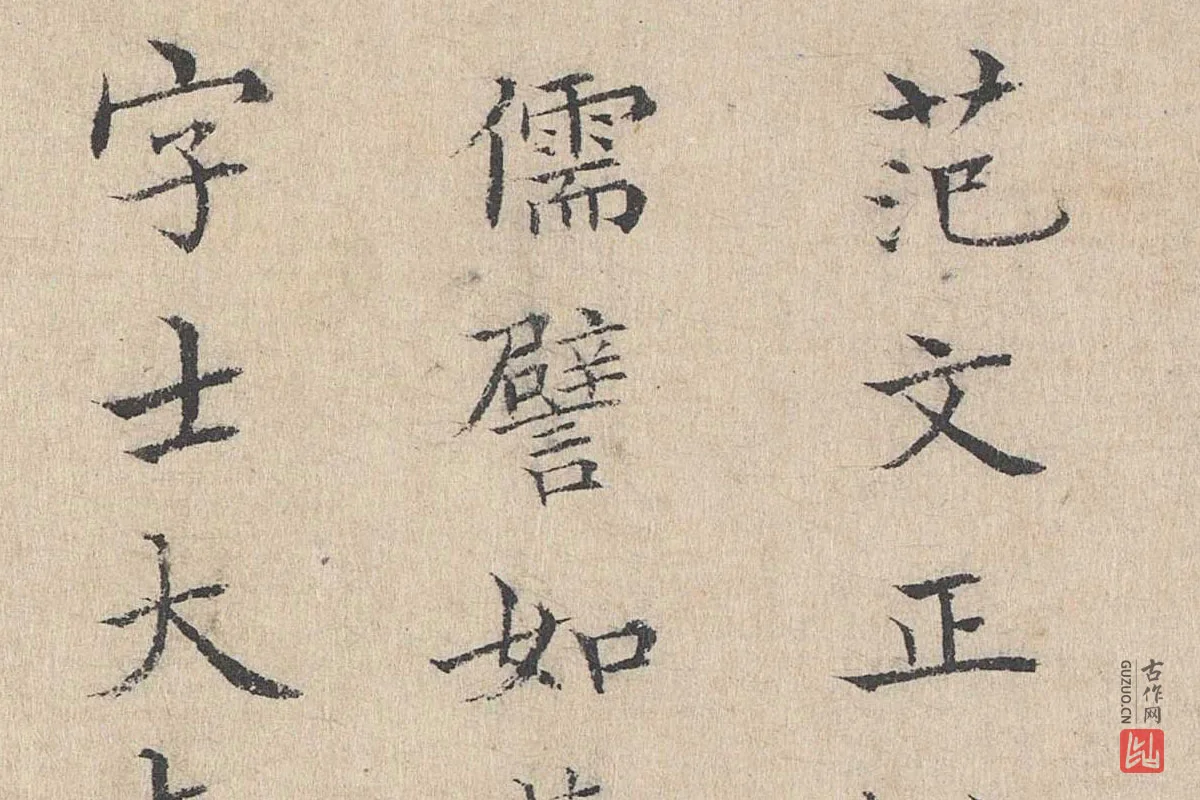 范文正
儒譬如
字士大
古作网
GUZUO.CN